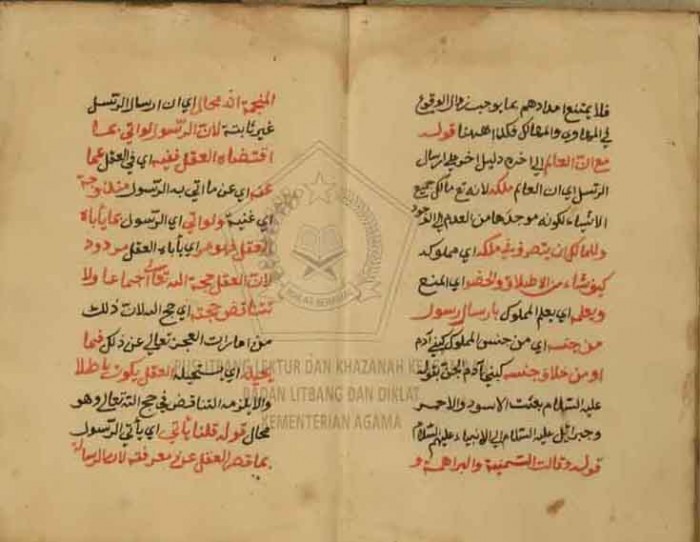 فلا يمتنع امدادهم بما يوجب زوال الوقوع
في المهاوي والمهالك فكذا ههنا قوله
مع ان العالم إلى آخره دليل آخر على ارسال
الرسل اي ان العالم ملكه لانه تع مالك جميع
الاشياء لكونه موجدها من العدم الى الوجود
وللمالك ان يتصرف في ملكه اي مملوكه
كيف شاء من الاطلاق والحظر اي المنع
ويعلمه اي يعلم المملوك بارسال رسول
من جنسه اي من جنس المملوك كبني آدم
او من خلاف جنسه كبني آدم الجن بقوله
عليه السلام بعثت الى الاسود والاحمر
وجبرائيل عليه السلام الى الانبياء عليهم السلام
قوله وقالت السمنية والبراهمة و
انه محال اي ان ارسال الرسل
غير ثابتة لان الرسول لو اتى بما
اقتضاه العقل ففيه اي في العقل
عنه اي عن ما اتى به الرسول مندوحة
اي غنية ولو اتى اي الرسول بما ياباه
العقل فهو مردود اي ياباه العقل مردود
لان العقل حجة الله تعالى اجماعا ولا
تتناقض حججه اي حجج الله لان ذلك
من امارات العجز تعالى عن ذلك فما
يحيله اي يستحيله العقل يكون باطلا
والا يلزمه التناقض في حجج الله تعالى وهو
محال قوله قلنا ياتي اي ياتي الرسول
بما قصر العقل عن معرفته لان الرسالة
PUSLITBANG LEKTUR DAN KHAZANAH KEAGAMAAN
BADAN LITBANG DAN DIKLAT
KEMENTERIAN AGAMA